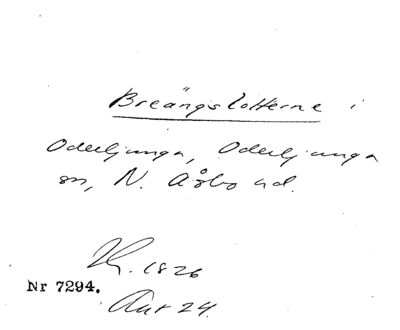 Breängslotterne i
Oderljunga, Oderljunga
sn, N. Åsbo hd.
Th. 1826
Nr 7294.
Akt 24